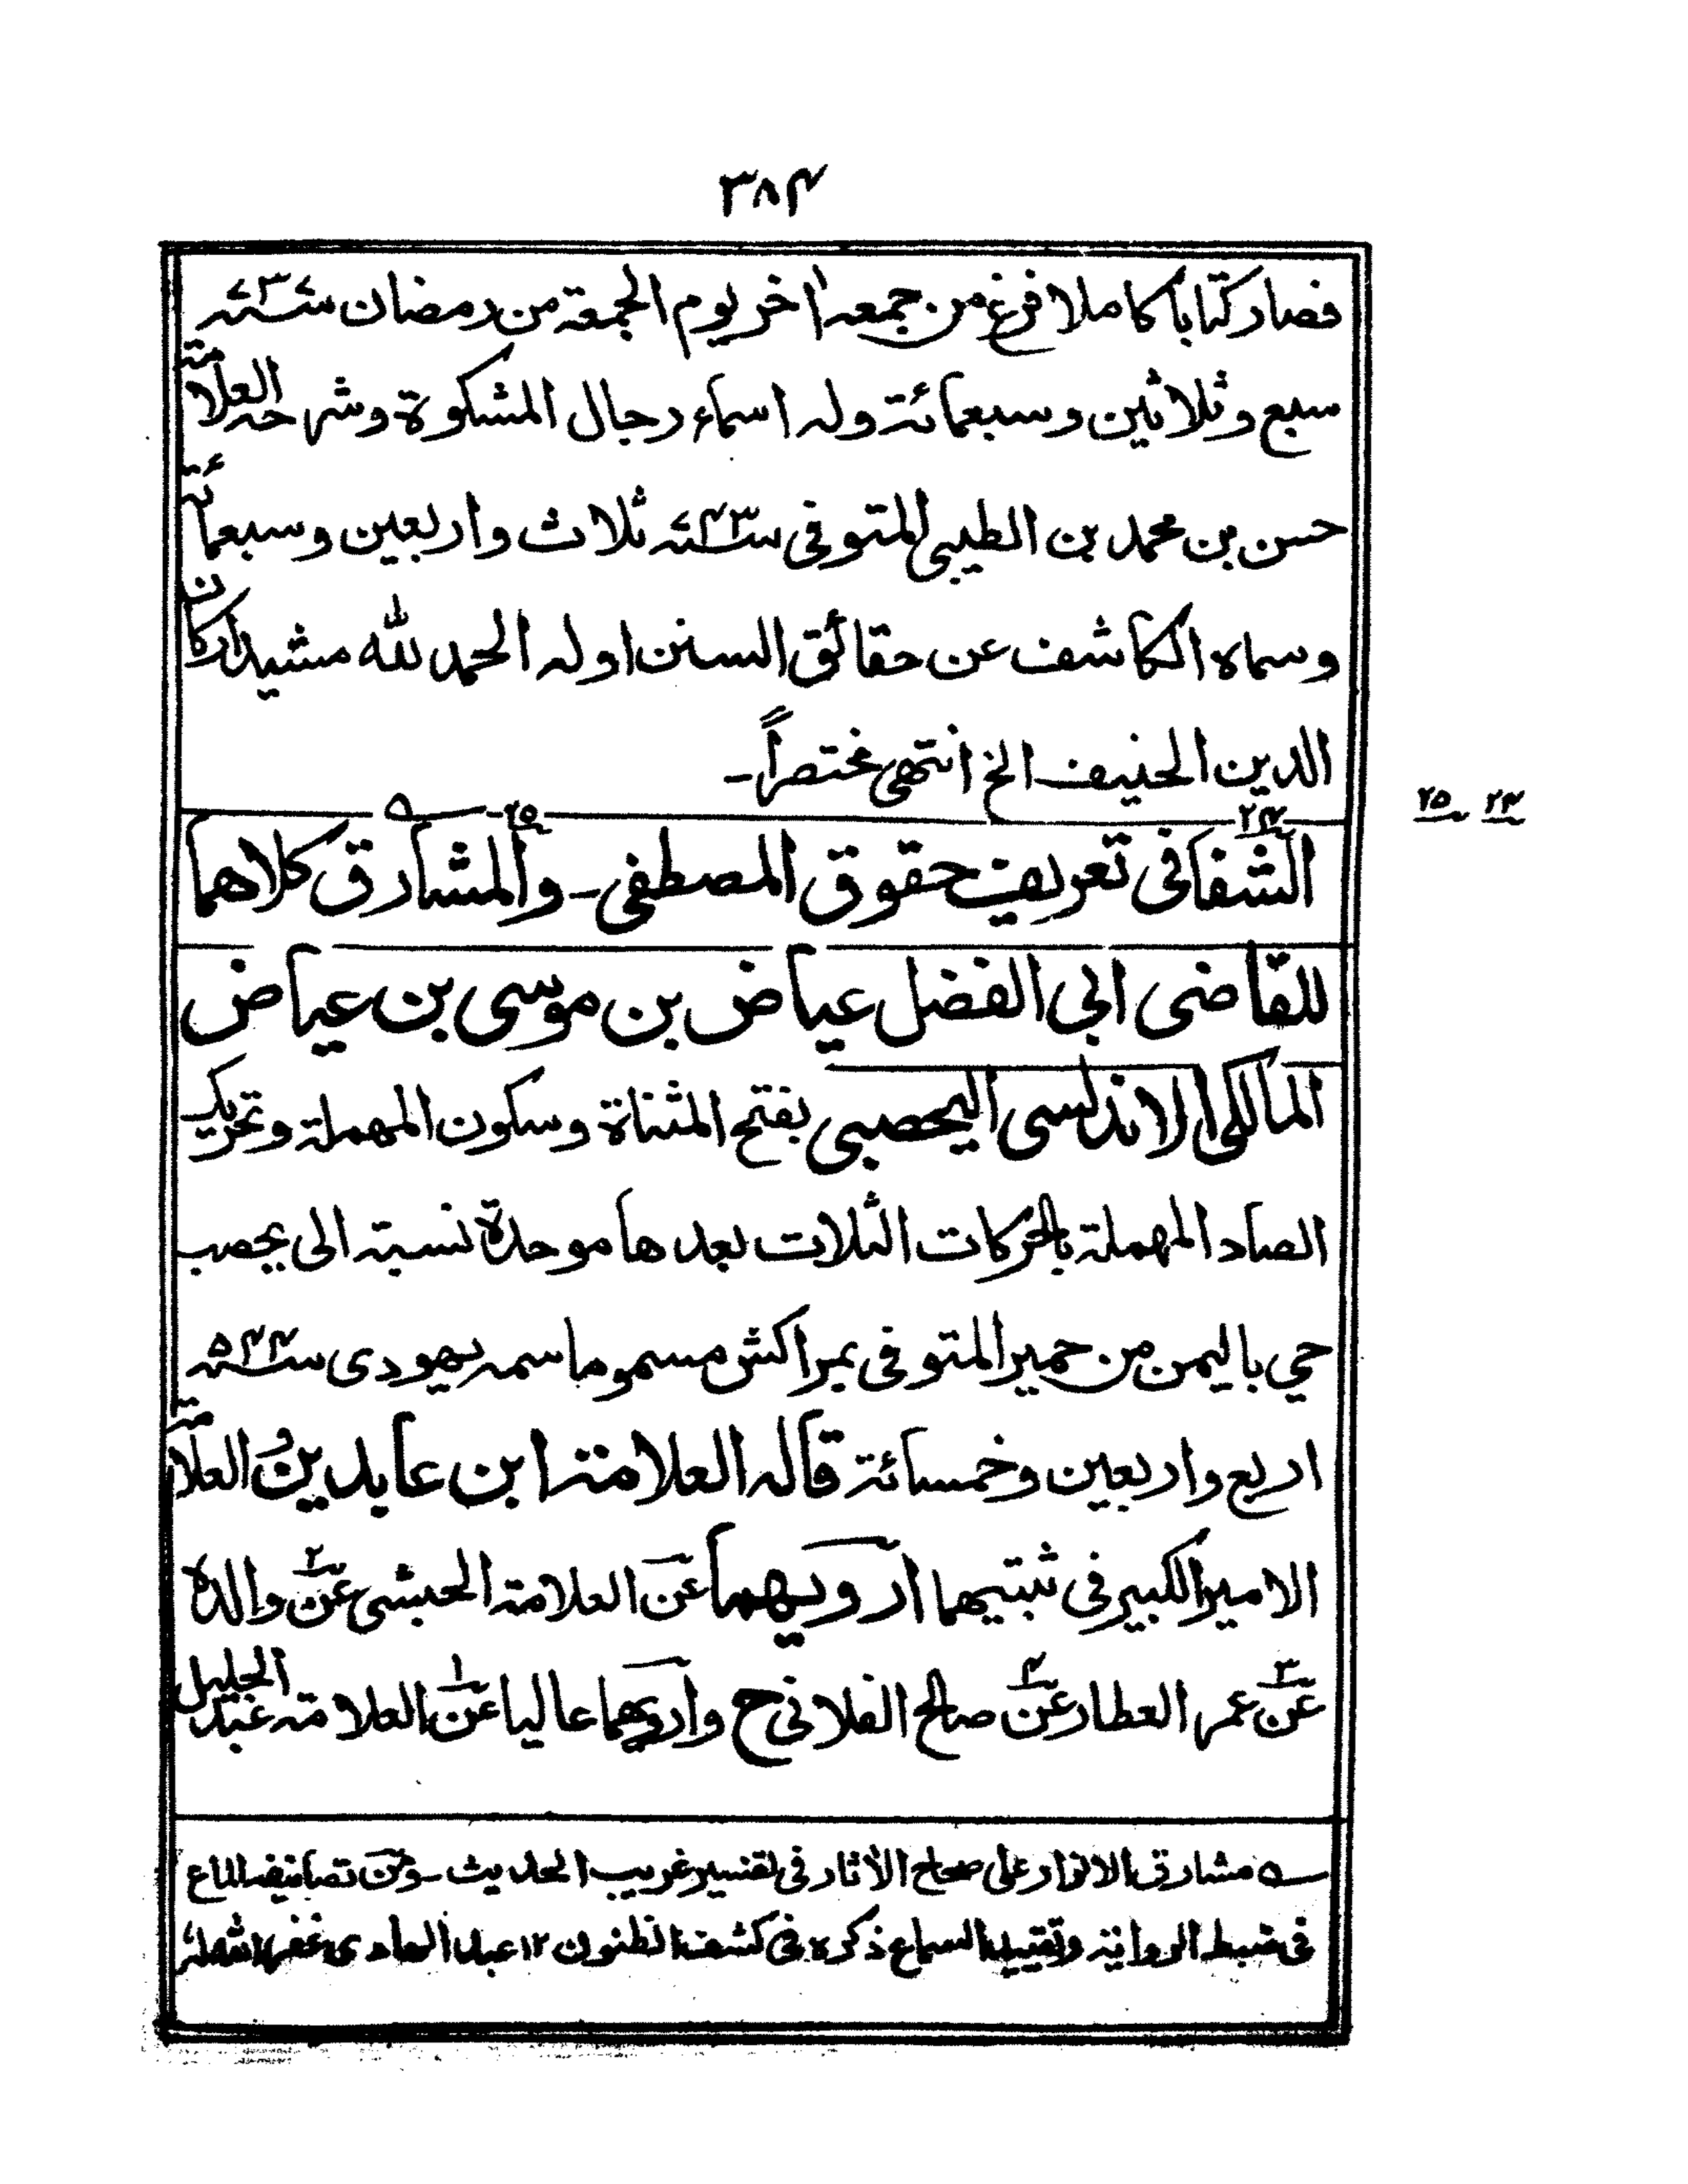 ٣٨٤
فصار كتابا كاملا فرغ من جمعه اٰخر يوم الجمعة من رمضان سنة ٧٣٧
سبع وثلاثين وسبعمائة وله اسماء رجال المشكوة وشرحه العلامة
حسن بن محمد بن الطيبى المتوفى سنة ٧٤٣ ثلاث واربعين وسبعمائة
وسماه الكاشف عن حقائق السنن اوله الحمد لله مشيد اركان
الدين الحنيف الخ انتهى مختصراً ـ
٢٤ ٢٥
٢٤ ٢٥ ه
الشفا فى تعريف حقوق المصطفى ـ والمشارق كلاهما
للقاضى ابى الفضل عياض بن موسى بن عياض
المالكى الاندلسى اليحصبى بفتح المثناة وسكون المهملة وتحريك
الصاد المهملة بالحركات الثلاث بعدها موحدة نسبة الى يحصب
حي باليمن من حمير المتوفى بمراكش مسموما سمه يهودى سنة ٥٤٤
اربع واربعين وخمسائة قاله العلامة ابن عابدين و العلامة
الامير الكبير فى ثبتيهما ارويهما عن العلامة الحبشى عن ٢ والده
عن ٣ عمر العطار عن ٤ صالح الفلانى ح وارويهما عاليا عن ١ العلامة عبد الجليل
ه مشارق الانوار على صحاح الأثار فى تفسير غريب الحديث ـ ومن تصانيفه الماع
فى ضبط الرواية وتقييد السماع ذكره فى كشف الظنون ١٢ عبد الهادى غفر الله له